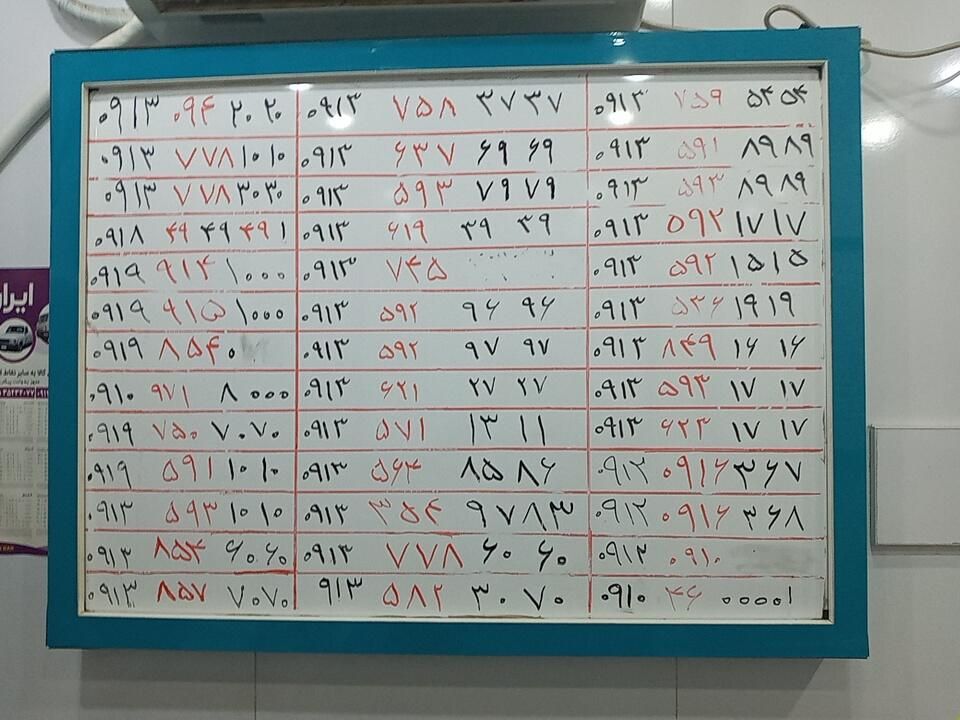 ۰۹۱۳ ۰۹۴ ۲۰۲۰ ۰۹۱۳ ۷۵۸ ۳۷۳۷ ۰۹۱۳ ۷۵۹ ۵۴۵۴
۰۹۱۳ ۷۷۸ ۱۰۱۰ ۰۹۱۳ ۶۳۷ ۶۹ ۶۹ ۰۹۱۳ ۵۹۱ ۸۹۸۹
۰۹۱۳ ۷۷۸ ۳۰۳۰ ۰۹۱۳ ۵۹۳ ۷۹ ۷۹ ۰۹۱۳ ۵۹۳ ۸۹۸۹
۰۹۱۸ ۴۹ ۴۹ ۴۹ ۱ ۰۹۱۳ ۶۱۹ ۳۹ ۳۹ ۰۹۱۳ ۵۹۲ ۱۷۱۷
۰۹۱۹ ۹۱۴ ۱۰۰۰ ۰۹۱۳ ۷۴۵ ۰۹۱۳ ۵۹۲ ۱۵۱۵
۰۹۱۹ ۹۱۵ ۱۰۰۰ ۰۹۱۳ ۵۹۲ ۹۶ ۹۶ ۰۹۱۳ ۵۳۶ ۱۹۱۹
۰۹۱۹ ۸۵۴۰ ۰۹۱۳ ۵۹۲ ۹۷ ۹۷ ۰۹۱۳ ۸۴۹ ۱۶ ۱۶
۰۹۱۰ ۹۷۱ ۸۰۰۰ ۰۹۱۳ ۶۲۱ ۲۷ ۲۷ ۰۹۱۳ ۵۹۳ ۱۷ ۱۷
۰۹۱۹ ۷۵۰ ۷۰۷۰ ۰۹۱۳ ۵۷۱ ۱۳ ۱۱ ۰۹۱۳ ۶۲۳ ۱۷ ۱۷
۰۹۱۹ ۵۹۱ ۱۰۱۰ ۰۹۱۳ ۵۶۴ ۸۵۸۶ ۰۹۱۲ ۰۹۱۶ ۳۶۷
۰۹۱۳ ۵۹۳ ۱۰۱۰ ۰۹۱۳ ۳۵۴ ۹۷۸۳ ۰۹۱۲ ۰۹۱۶ ۳۶۸
۰۹۱۳ ۸۵۴ ۶۰۶۰ ۰۹۱۳ ۷۷۸ ۶۰ ۶۰ ۰۹۱۲ ۰۹۱۰
۰۹۱۳ ۸۵۷ ۷۰۷۰ ۰۹۱۳ ۵۸۲ ۳۰۷۰ ۰۹۱۰ ۴۶ ۰۰۰۰۱